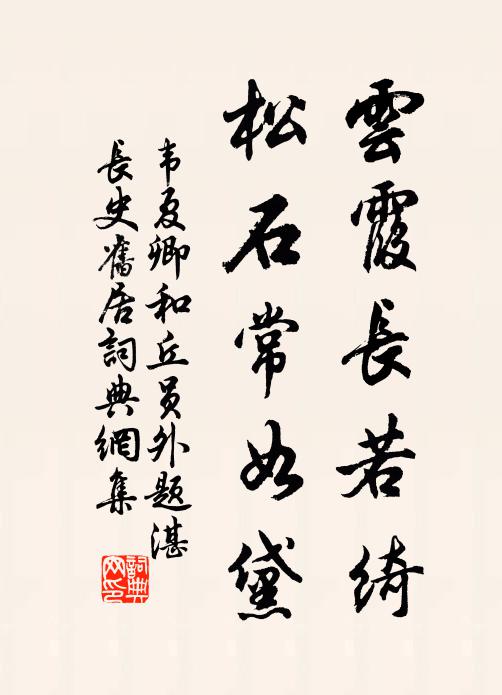 雲霞長若綺
松石常如黛
韦夏卿和丘员外題湛
長史舊居詞典網集
詞典
网印